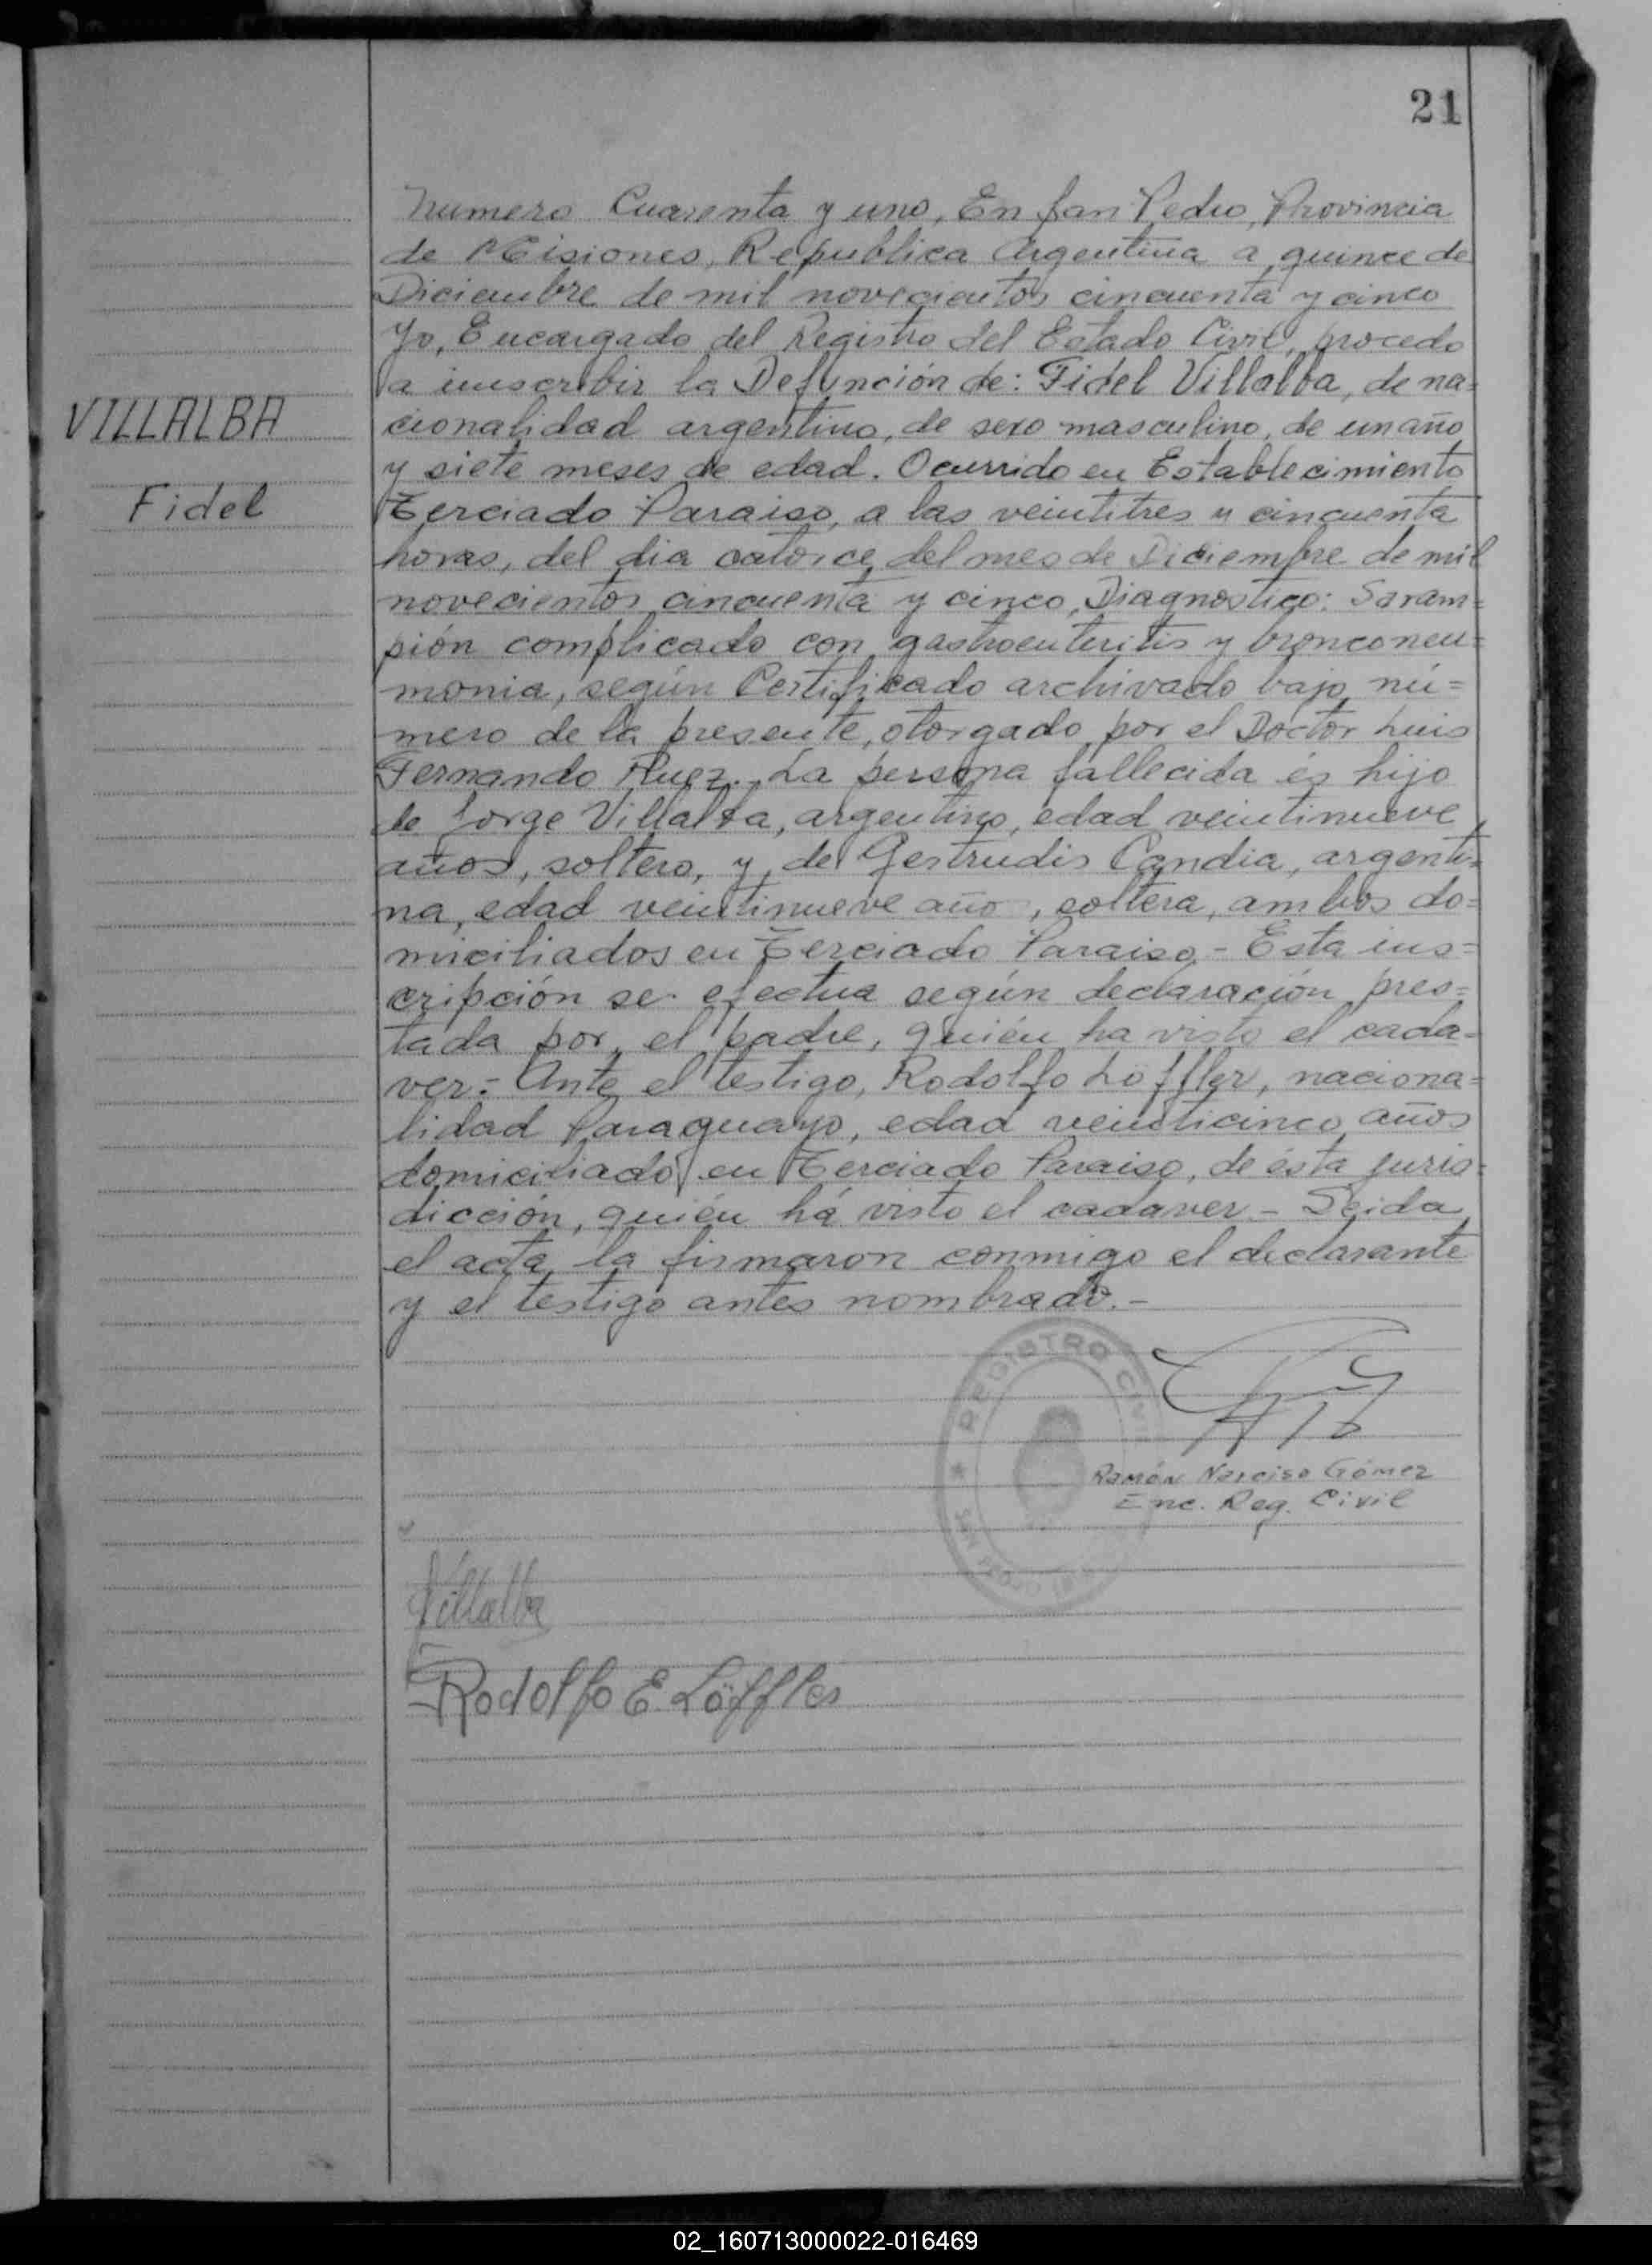 21
Numero Cuarenta y uno, En San Pedro, Provincia
de Misiones, Republica Argentina a quince de
Diciembre de mil novecientos cincuenta y cinco
Yo, Encargado del Registro del Estado Civil, procedo
a inuscribir la Defunción de: Fidel Villalba, de na=
VILLALBA
cionalidad argentino, de sexo masculino, de un año
y siete meses de edad. Ocurrido en Establecimiento
Fidel
Terciado Paraiso, a las veintitres y cincuenta
horas, del dia catorce del mes de Diciembre de mil
novecientos cincuenta y cinco, Diagnostico: Saram=
pión complicado con gastroenteritis y bronconeu=
monia, según Certificado archivado bajo nú=
mero de la presente, otorgado por el Doctor Luis
Fernando. La persona fallecida és hijo
de Jorge Villalba, argentino, edad veintinueve
años, soltero, y de Gestrudis Candia, argenti=
na, edad veintinueve año, soltera, ambos do=
miciliados en Terciado Paraiso.- Esta ins=
cripción se efectua según declaración pres=
tada por el padre, quién ha visto el cada=
ver.- Ante el testigo, Rodolfo Löffler, naciona=
lidad Paraguayo, edad veinticinco años
domiciliado en Terciado Paraiso, de ésta juris=
dicción, quién há visto el cadaver.- Leida
el acta la firmaron conmigo el declarante
y el testigo antes nombrado.-
REGISTRO CIVIL
Ramón Narciso Gómez
Enc. Reg. Civil
Villalba
Rodolfo E. Löffler
02_160713000022-016469